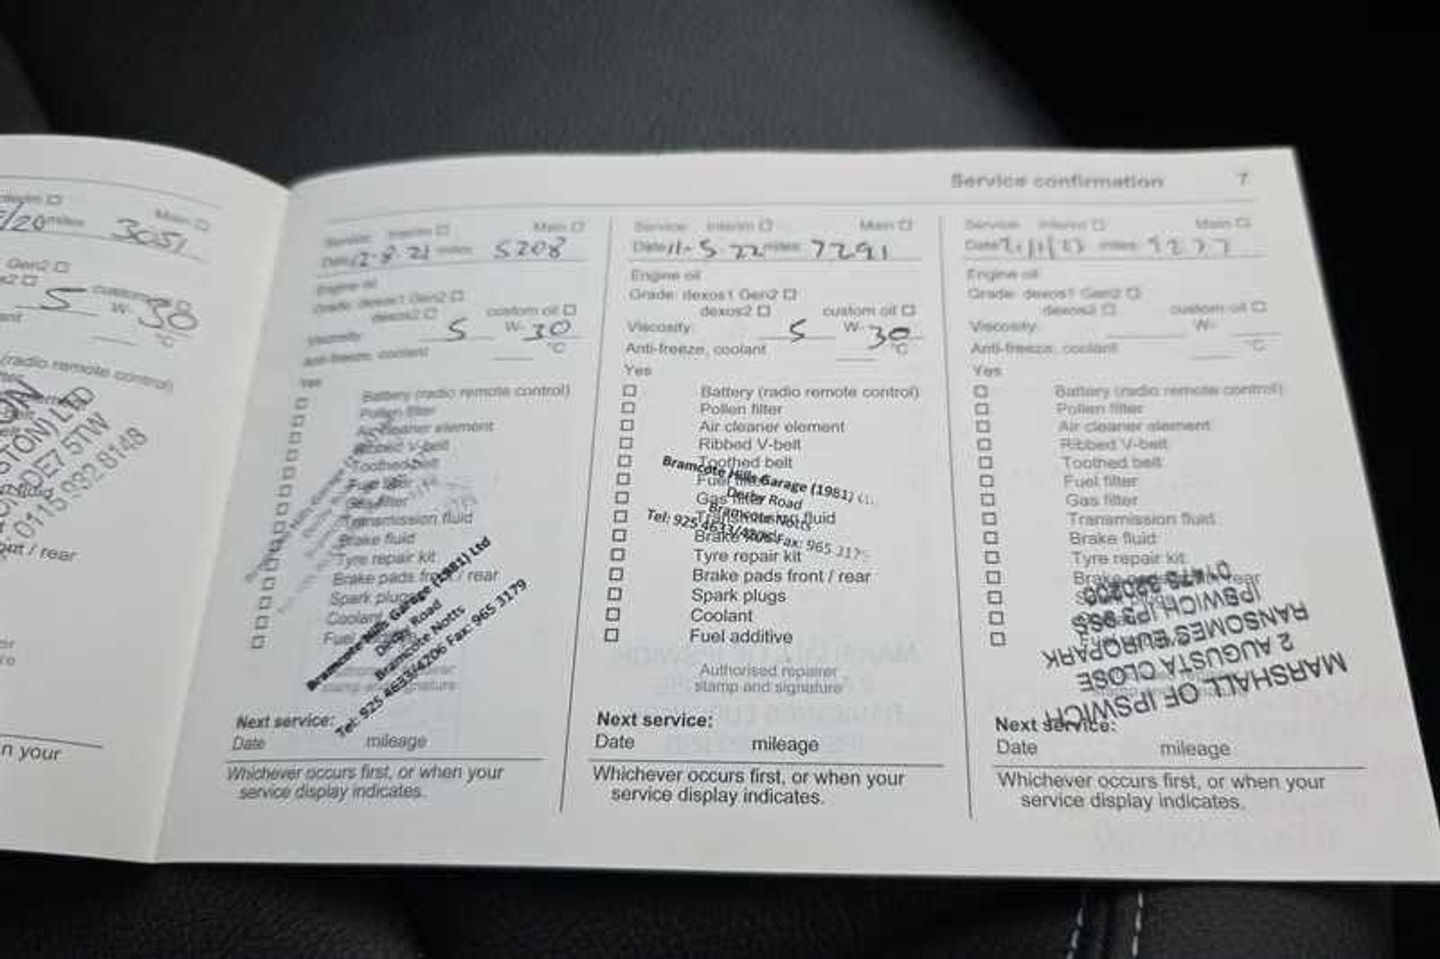 Main
/20 miles 3051
Gen2
5 W-30
°C
(radio remote control)
TON) LTD
DE7 5TW
0115 932 8148
out / rear
n your
Service confirmation 7
Service: Interim Main
Date 12-8-21 miles 5208
Engine oil
Grade: dexos1 Gen2
dexos2 custom oil
Viscosity: 5 W-30
Anti-freeze, coolant °C
Yes
Battery (radio remote control)
Pollen filter
Air cleaner element
Ribbed V-belt
Toothed belt
Fuel filter
Gas filter
Transmission fluid
Brake fluid
Tyre repair kit
Brake pads front / rear
Spark plugs
Coolant
Fuel
Bramcote Hills Garage (1981) Ltd
Derby Road
Bramcote Notts
Tel: 925 4633/4206 Fax: 965 3179
stamp and signature
Next service:
Date mileage
Whichever occurs first, or when your
service display indicates.
Service: Interim Main
Date 11-5-22 miles 7291
Engine oil
Grade: dexos1 Gen2
dexos2 custom oil
Viscosity: 5 W-30
Anti-freeze, coolant °C
Yes
Battery (radio remote control)
Pollen filter
Air cleaner element
Ribbed V-belt
Toothed belt
Fuel filter
Gas filter
Transmission fluid
Brake fluid
Tyre repair kit
Brake pads front / rear
Spark plugs
Coolant
Fuel additive
Bramcote Hills Garage (1981)
Derby Road
Bramcote Notts
Tel: 925 4633/4206 Fax: 965 3179
Authorised repairer
stamp and signature
Next service:
Date mileage
Whichever occurs first, or when your
service display indicates.
Service: Interim Main
Date miles 9277
Engine oil
Grade: dexos1 Gen2
dexos2 custom oil
Viscosity: W-
Anti-freeze, coolant °C
Yes
Battery (radio remote control)
Pollen filter
Air cleaner element
Ribbed V-belt
Toothed belt
Fuel filter
Gas filter
Transmission fluid
Brake fluid
Tyre repair kit
Brake rear
MARSHALL OF IPSWICH
2 AUGUSTA CLOSE
RANSOMES EUROPARK
IPSWICH IP3 9SS
01473
Next service:
Date mileage
Whichever occurs first, or when your
service display indicates.